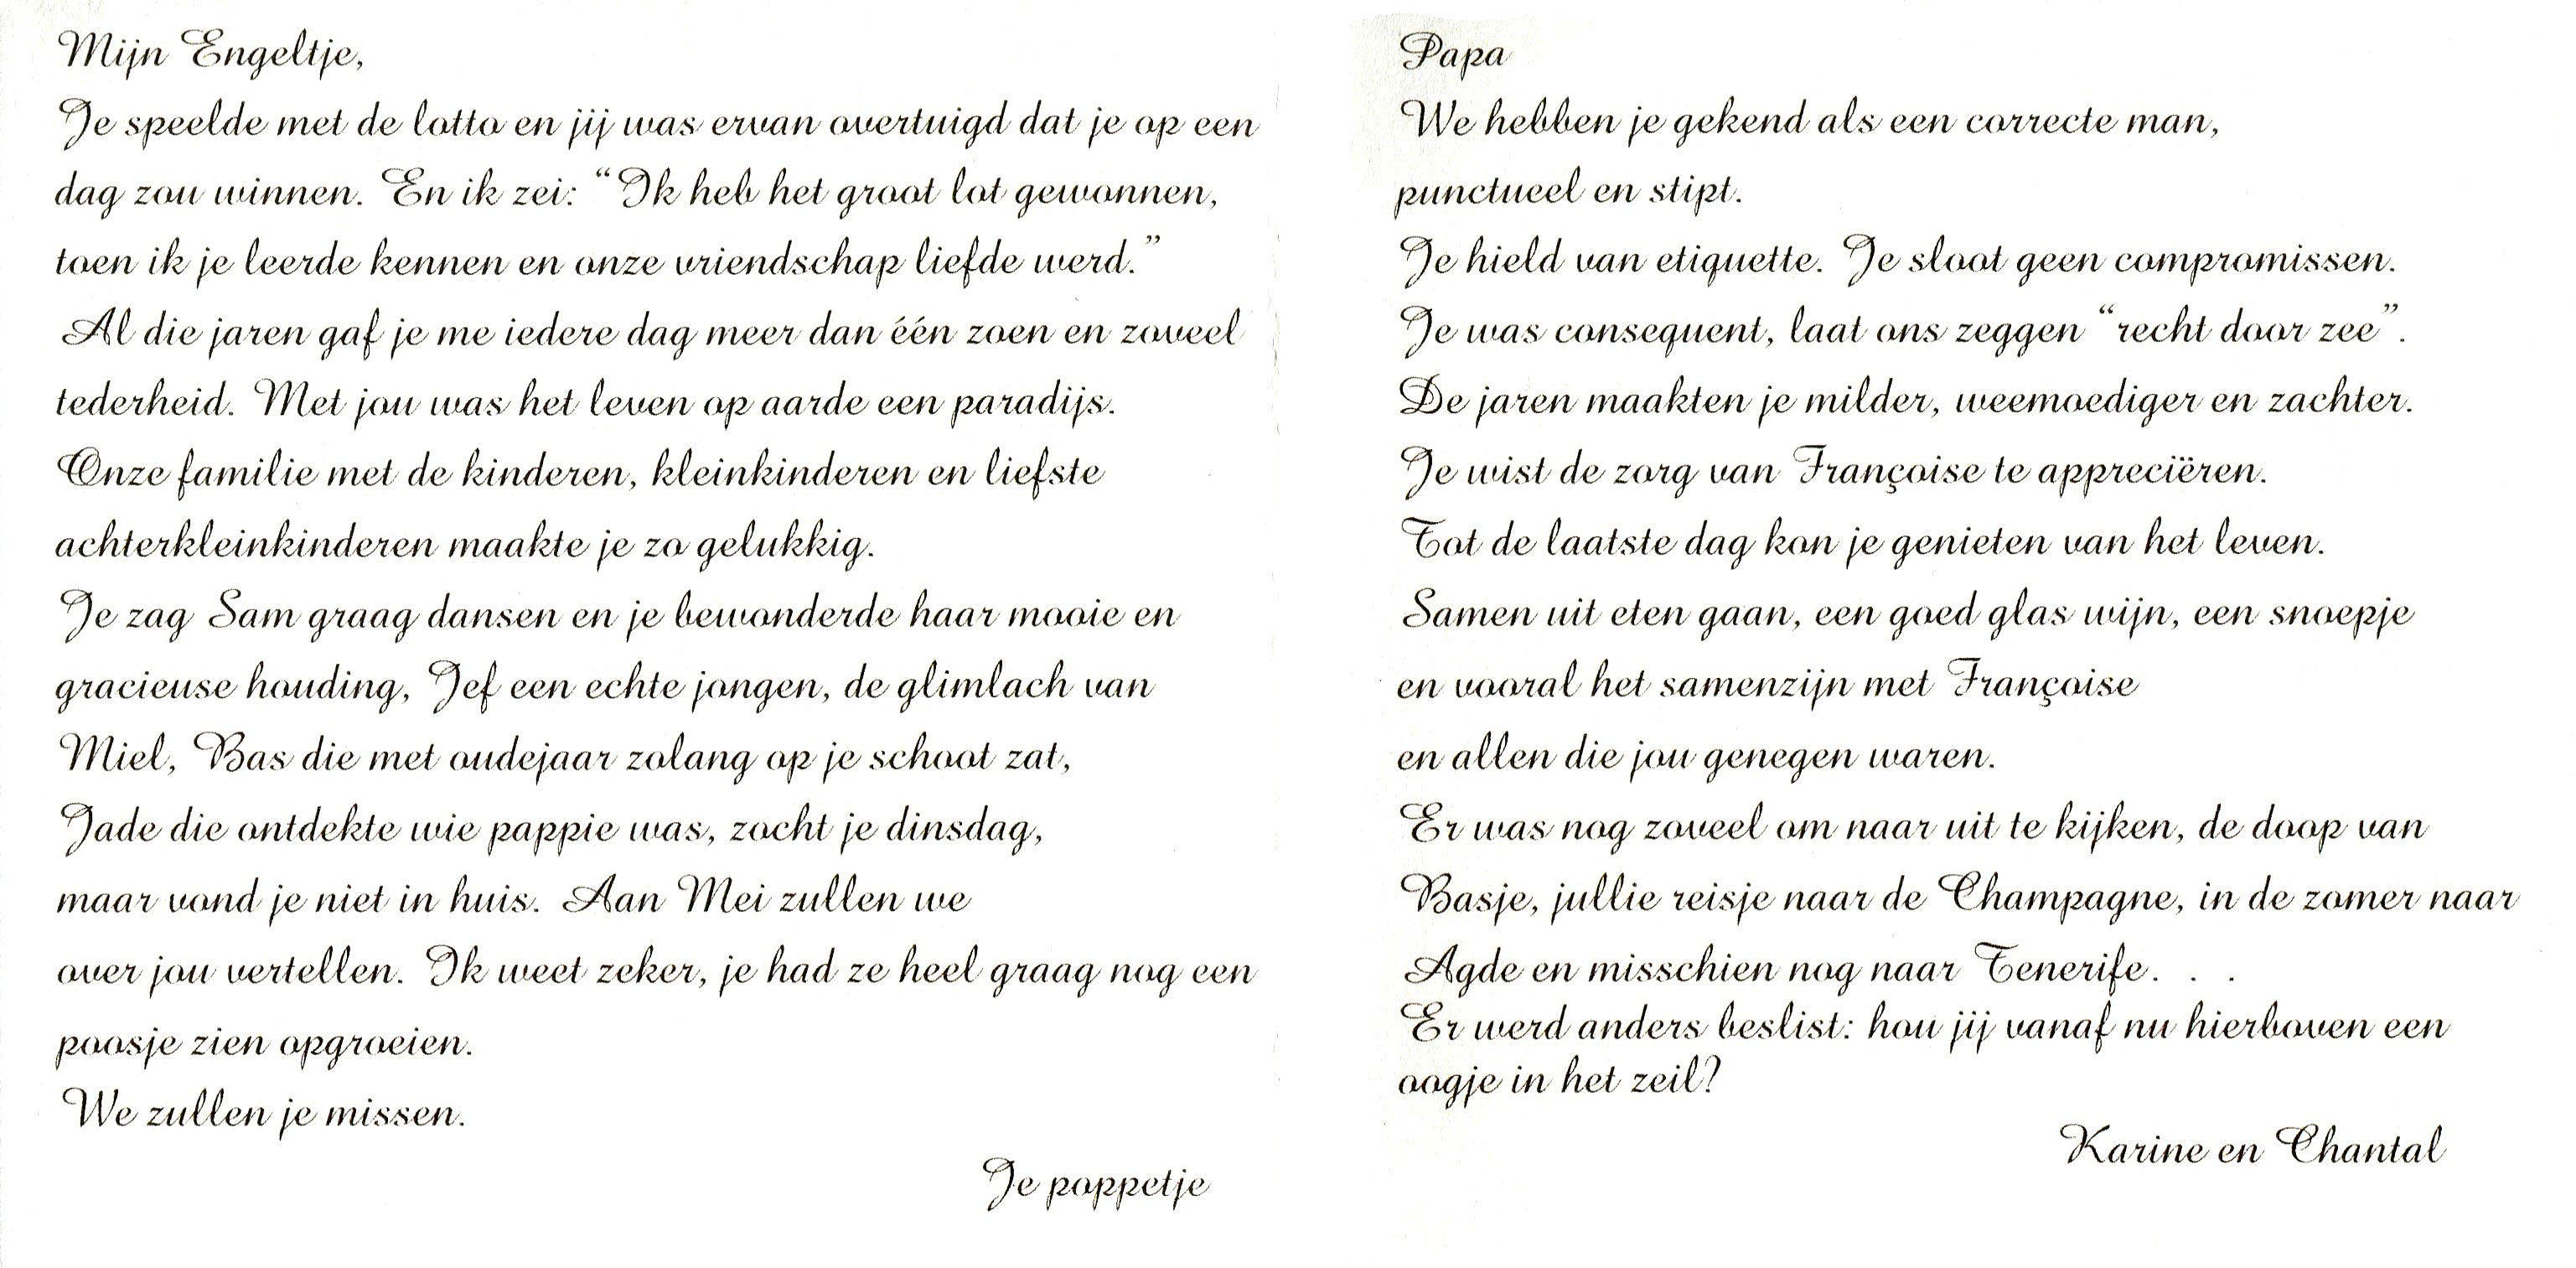 Mijn Engeltje,
Je speelde met de lotto en jij was ervan overtuigd dat je op een
dag zou winnen. En ik zei: “Ik heb het groot lot gewonnen,
toen ik je leerde kennen en onze vriendschap liefde werd.”
Al die jaren gaf je me iedere dag meer dan één zoen en zoveel
tederheid. Met jou was het leven op aarde een paradijs.
Onze familie met de kinderen, kleinkinderen en liefste
achterkleinkinderen maakte je zo gelukkig.
Je zag Sam graag dansen en je bewonderde haar mooie en
gracieuse houding, Jef een echte jongen, de glimlach van
Miel, Bas die met oudejaar zolang op je schoot zat,
Jade die ontdekte wie pappie was, zocht je dinsdag,
maar vond je niet in huis. Aan Mei zullen we
over jou vertellen. Ik weet zeker, je had ze heel graag nog een
poosje zien opgroeien.
We zullen je missen.
Je poppetje
Papa
We hebben je gekend als een correcte man,
punctueel en stipt.
Je hield van etiquette. Je sloot geen compromissen.
Je was consequent, laat ons zeggen “recht door zee”.
De jaren maakten je milder, weemoediger en zachter.
Je wist de zorg van Françoise te appreciëren.
Tot de laatste dag kon je genieten van het leven.
Samen uit eten gaan, een goed glas wijn, een snoepje
en vooral het samenzijn met Françoise
en allen die jou genegen waren.
Er was nog zoveel om naar uit te kijken, de doop van
Basje, jullie reisje naar de Champagne, in de zomer naar
Agde en misschien nog naar Tenerife. . .
Er werd anders beslist: hou jij vanaf nu hierboven een
oogje in het zeil?
Karine en Chantal